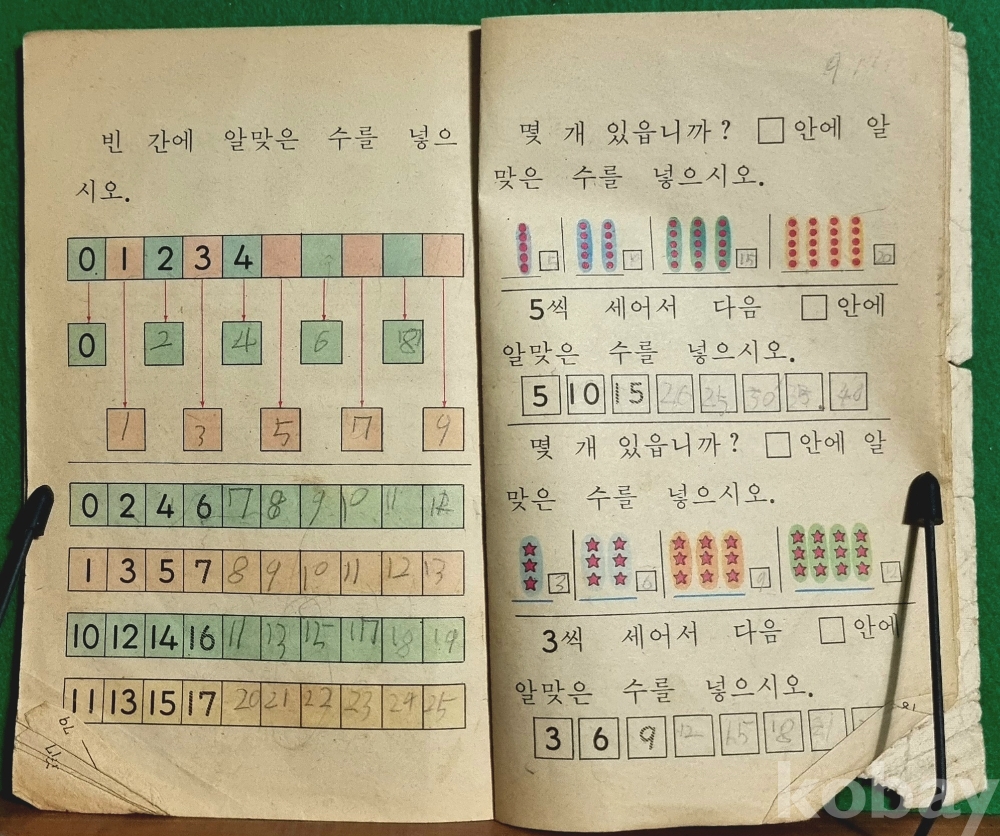 빈 간에 알맞은 수를 넣으
시오.
0 1 2 3 4
0 2 4 6 8
1 3 5 7 9
0 2 4 6 7 8 9 10 11 12
1 3 5 7 8 9 10 11 12 13
10 12 14 16 11 13 15 17 18 19
11 13 15 17 20 21 22 23 24 25
몇 개 있읍니까? □안에 알
맞은 수를 넣으시오.
5 15 20
5씩 세어서 다음 □안에
알맞은 수를 넣으시오.
5 10 15 25 30 35 40
몇 개 있읍니까? □안에 알
맞은 수를 넣으시오.
3 6 9
3씩 세어서 다음 □안에
알맞은 수를 넣으시오.
3 6 9 12 15 18 21
kobay